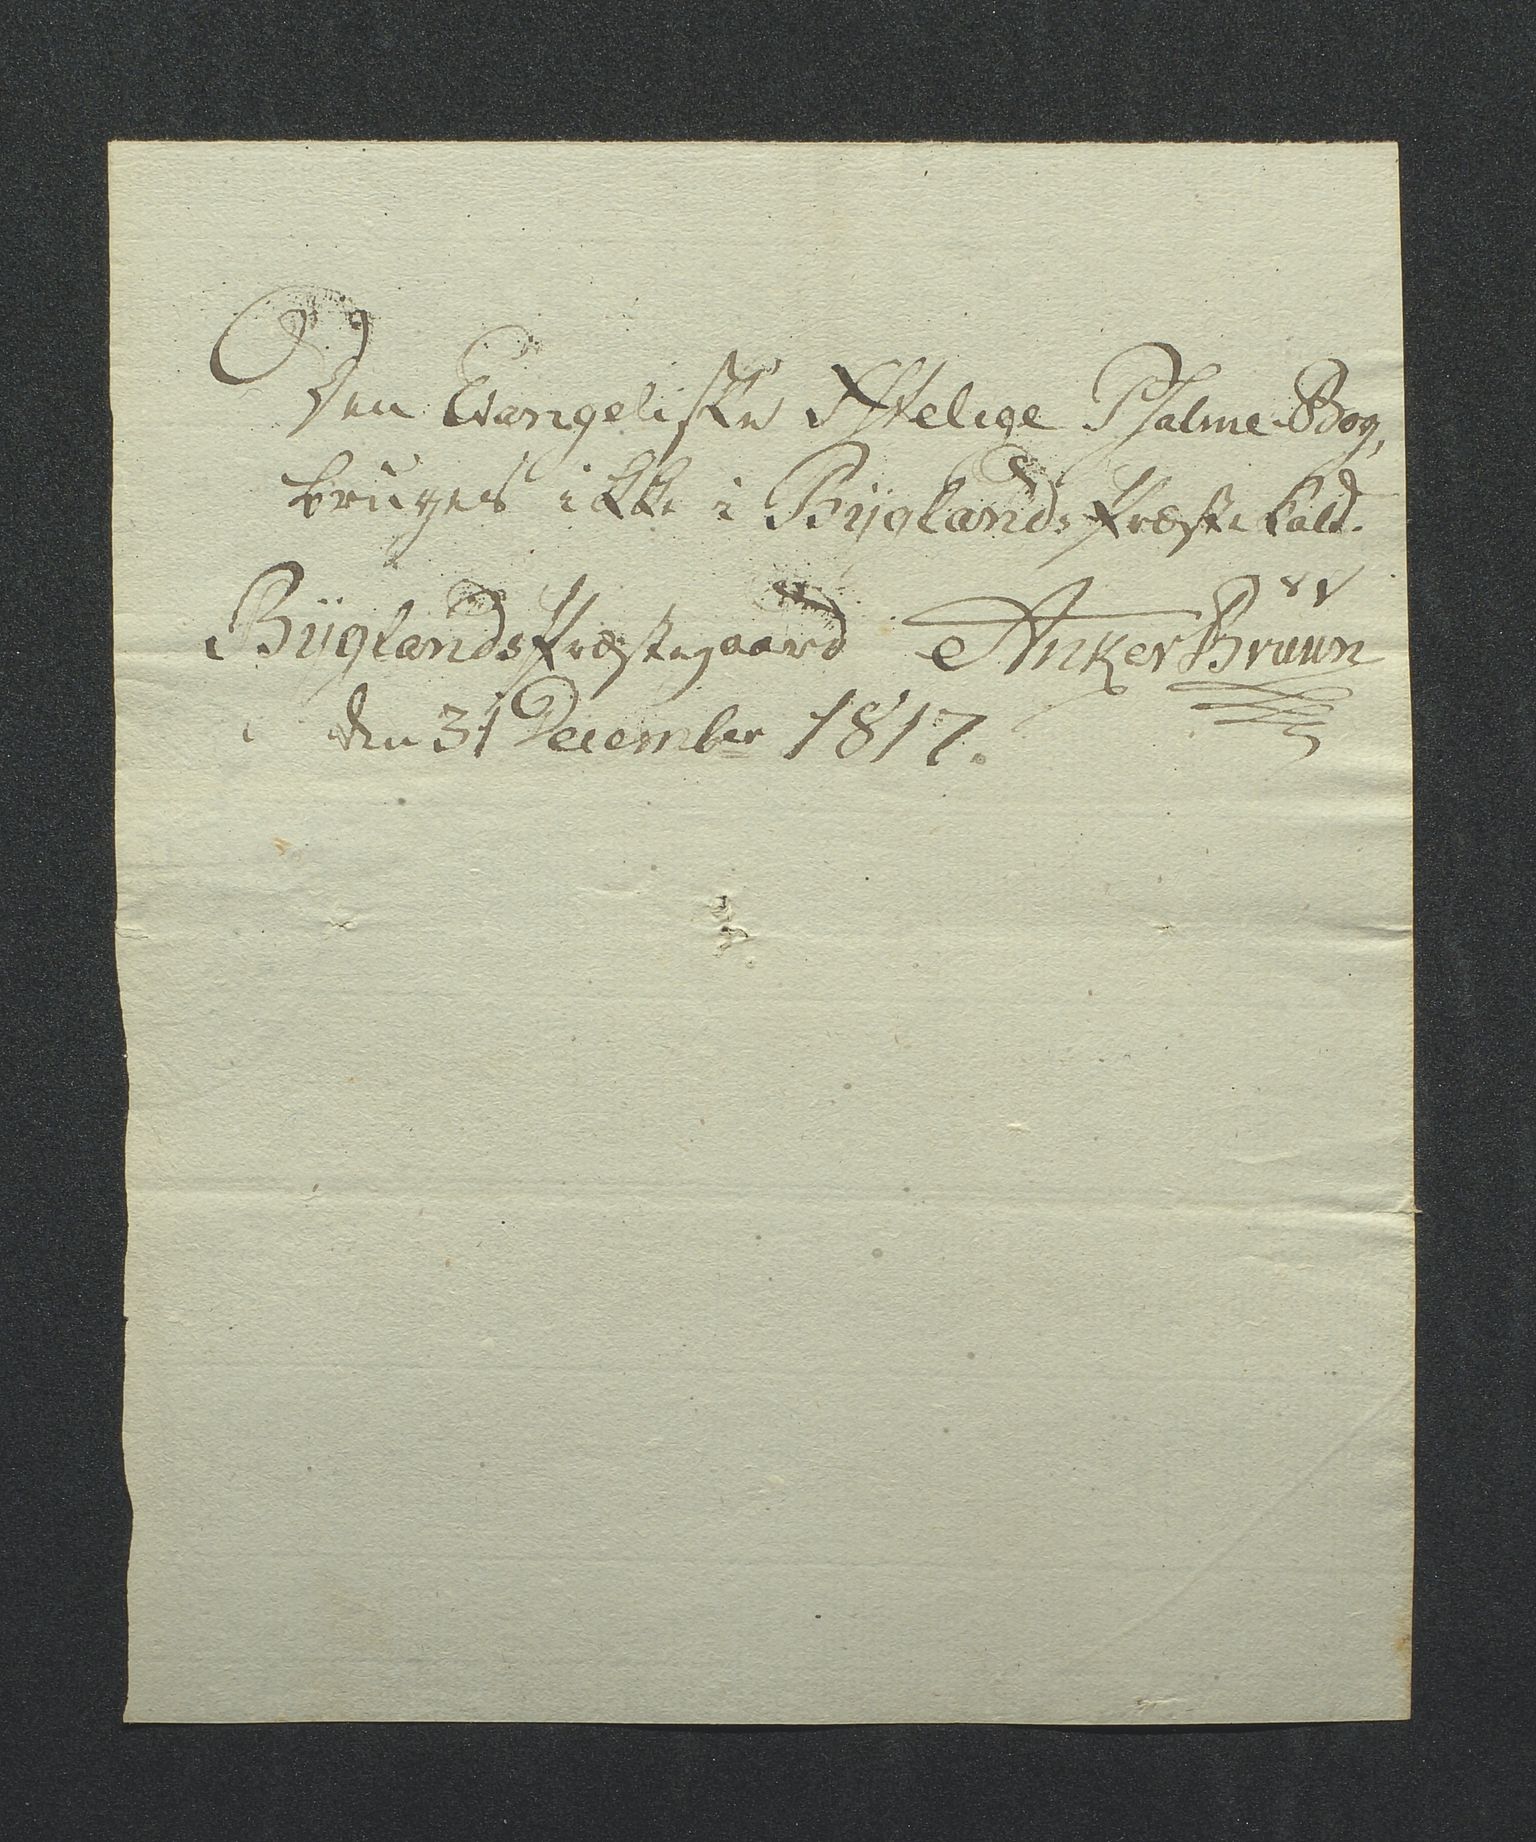 Den Evangeliske Xstelige Psalme-Bog,
bruges ikke i Byglands Præste kald.
Byglands Præstegaard Anker Bruun
den 31 December 1817.